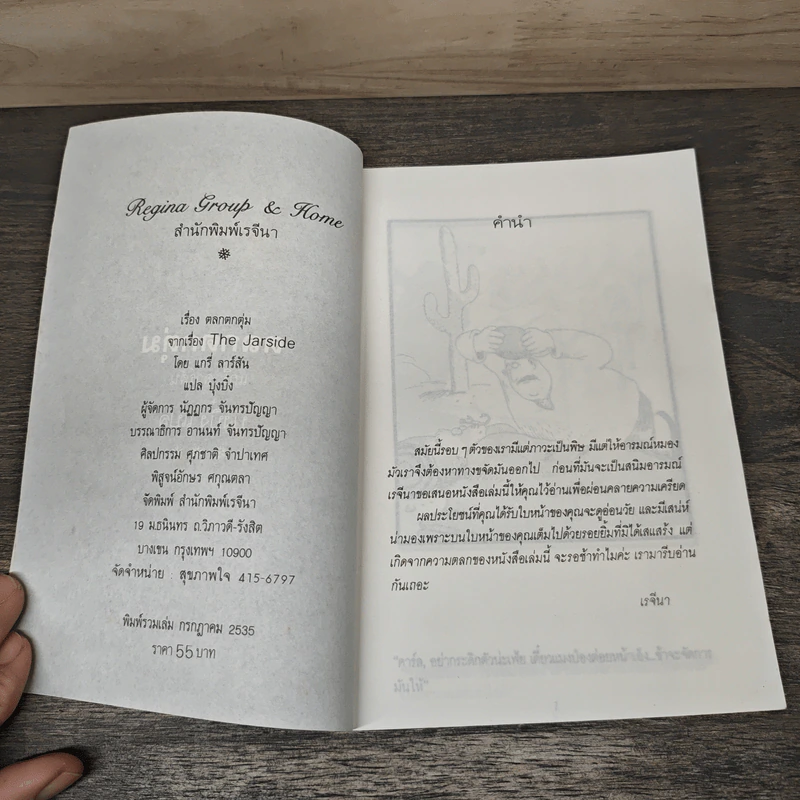 Regina Group & Home
สำนักพิมพ์เรจีนา
เรื่อง ตลกตกตุ่ม
จากเรื่อง The Jarside
โดย แกรี่ ลาร์สัน
แปล บุ๋งบิ๋ง
ผู้จัดการ นัฏฐกร จันทรปัญญา
บรรณาธิการ อานนท์ จันทรปัญญา
ศิลปกรรม ศุภชาติ จำปาเทศ
พิสูจน์อักษร ศกุณตลา
จัดพิมพ์ สำนักพิมพ์เรจีนา
19 ม.ธนินทร ถ.วิภาวดี-รังสิต
บางเขน กรุงเทพฯ 10900
จัดจำหน่าย สุขภาพใจ 415-6797
พิมพ์รวมเล่ม กรกฎาคม 2535
ราคา 55 บาท
คำนำ
สมัยนี้รอบ ๆ ตัวของเรามีแต่ภาวะเป็นพิษ มีแต่ให้อารมณ์หมอง
มัวเราจึงต้องหาทางขจัดมันออกไป ก่อนที่มันจะเป็นสนิมอารมณ์
เรจีนาขอเสนอหนังสือเล่มนี้ให้คุณไว้อ่านเพื่อผ่อนคลายความเครียด
ผลประโยชน์ที่คุณได้รับใบหน้าของคุณจะดูอ่อนวัย และมีเสน่ห์
น่ามองเพราะบนใบหน้าของคุณเต็มไปด้วยรอยยิ้มที่มิได้เสแสร้ง แต่
เกิดจากความตลกของหนังสือเล่มนี้ จะรอช้าทำไมค่ะ เรามารีบอ่าน
กันเถอะ
เรจีนา